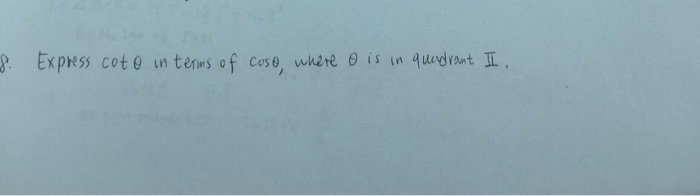 8. Express cot θ in terms of cosθ, where θ is in quadrant II.